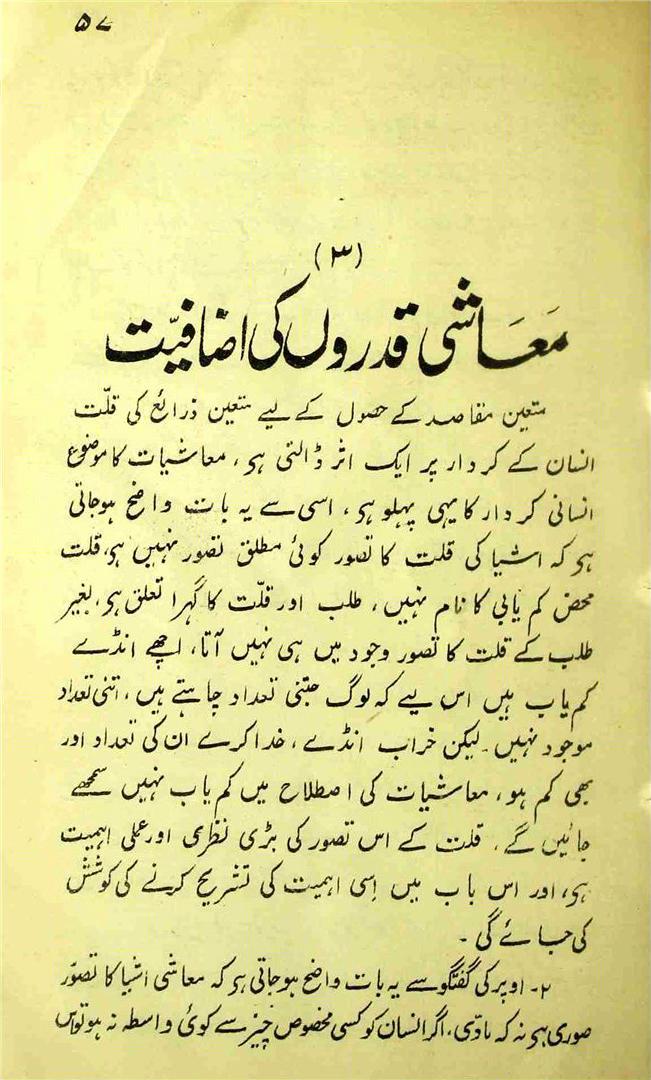 ۵۷
(۳)
مَعَاشی قدروں کی اضافیّت
متعین مقاصد کے حصول کے لیے متعین ذرائع کی قلّت
انسان کے کردار پر ایک اثر ڈالتی ہی، معاشیات کا موضوع
انسانی کردار کا یہی پہلو ہی، اسی سے یہ بات واضح ہوجاتی
ہی کہ اشیا کی قلت کا تصور کوئی مطلق تصور نہیں ہی، قلت
محض کم یابی کا نام نہیں، طلب اور قلّت کا گہرا تعلق ہی، بغیر
طلب کے قلت کا تصور وجود میں ہی نہیں آتا، اچھے انڈے
کم یاب ہیں اس لیے کہ لوگ جتنی تعداد چاہتے ہیں، اتنی تعداد
موجود نہیں۔ لیکن خراب انڈے، خدا کرے ان کی تعداد اور
بھی کم ہو، معاشیات کی اصطلاح میں کم یاب نہیں سمجھے
جائیں گے، قلت کے اس تصور کی بڑی نظری اور عملی اہمیت
ہی، اور اس باب میں اِسی اہمیت کی تشریح کرنے کی کوشش
کی جائے گی۔
۲۔ اوپر کی گفتگو سے یہ بات واضح ہوجاتی ہی کہ معاشی اشیا کا تصوّر
صوری ہی نہ کہ مادّی، اگر انسان کو کسی مخصوص چیز سے کوئی واسطہ نہ ہو تو اس